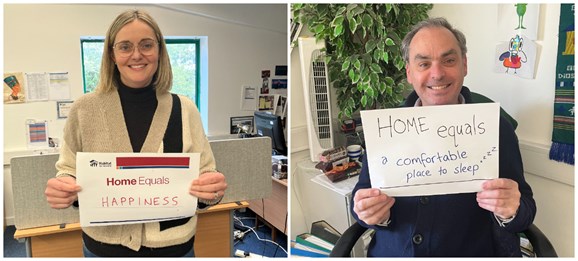 Habitat
Home Equals
HAPPINESS
HOME equals
a comfortable
place to sleep...zzz